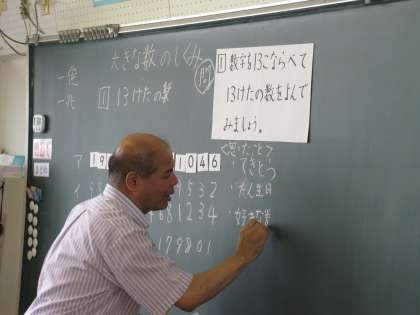 一億
一兆
大きな数のしくみ
1 13けたの数
1 数字を13こならべて
13けたの数をよんで
みましょう。
<思ったこと>
・てきとう
・たん生日
・好きな
ア 19
1046
イ
3532
681234
179801